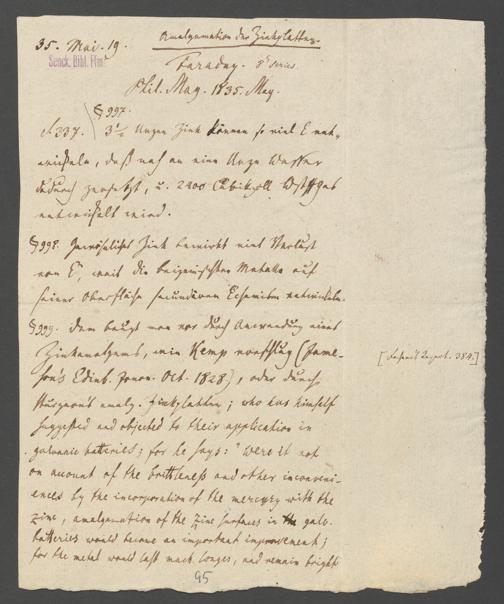 35. Mai. 19.
Amalgamation der Zinkplatten.
Senck. Bibl. Ffm.
Faraday. 8th series
Phil. Mag. 1835. May.
§ 997.
3 1/2 Unzen Zink können so viel E ent-
wickeln, daß nah an eine Unze Wasser
dadurch zersetzt, u. 2400 Cubikzoll
entwickelt wird.
§ 998. Gewöhnliches Zink bewirkt viel Verlust
von E, weil die beigemischten Metalle auf
seiner Oberfläche secundäre entwickeln.
§ 999. Dem beugt man vor durch Anwendung eines
Zinkamalgams, wie Kemp vorschlug (Jame-
son's Edinb. Journ. Oct. 1828), oder durch
Sturgeon's amalg. Zinkplatten; who has himself
suggested and objected to their application in
galvanic batteries; for he says: "were it not
on account of the brittleness and other inconveni-
ences by the incorporation of the mercury with the
zinc, amalgamation of the zinc surfaces in the galv.
batteries would become an important improvement;
for the metal would last much longer, and remain bright
384.]
95